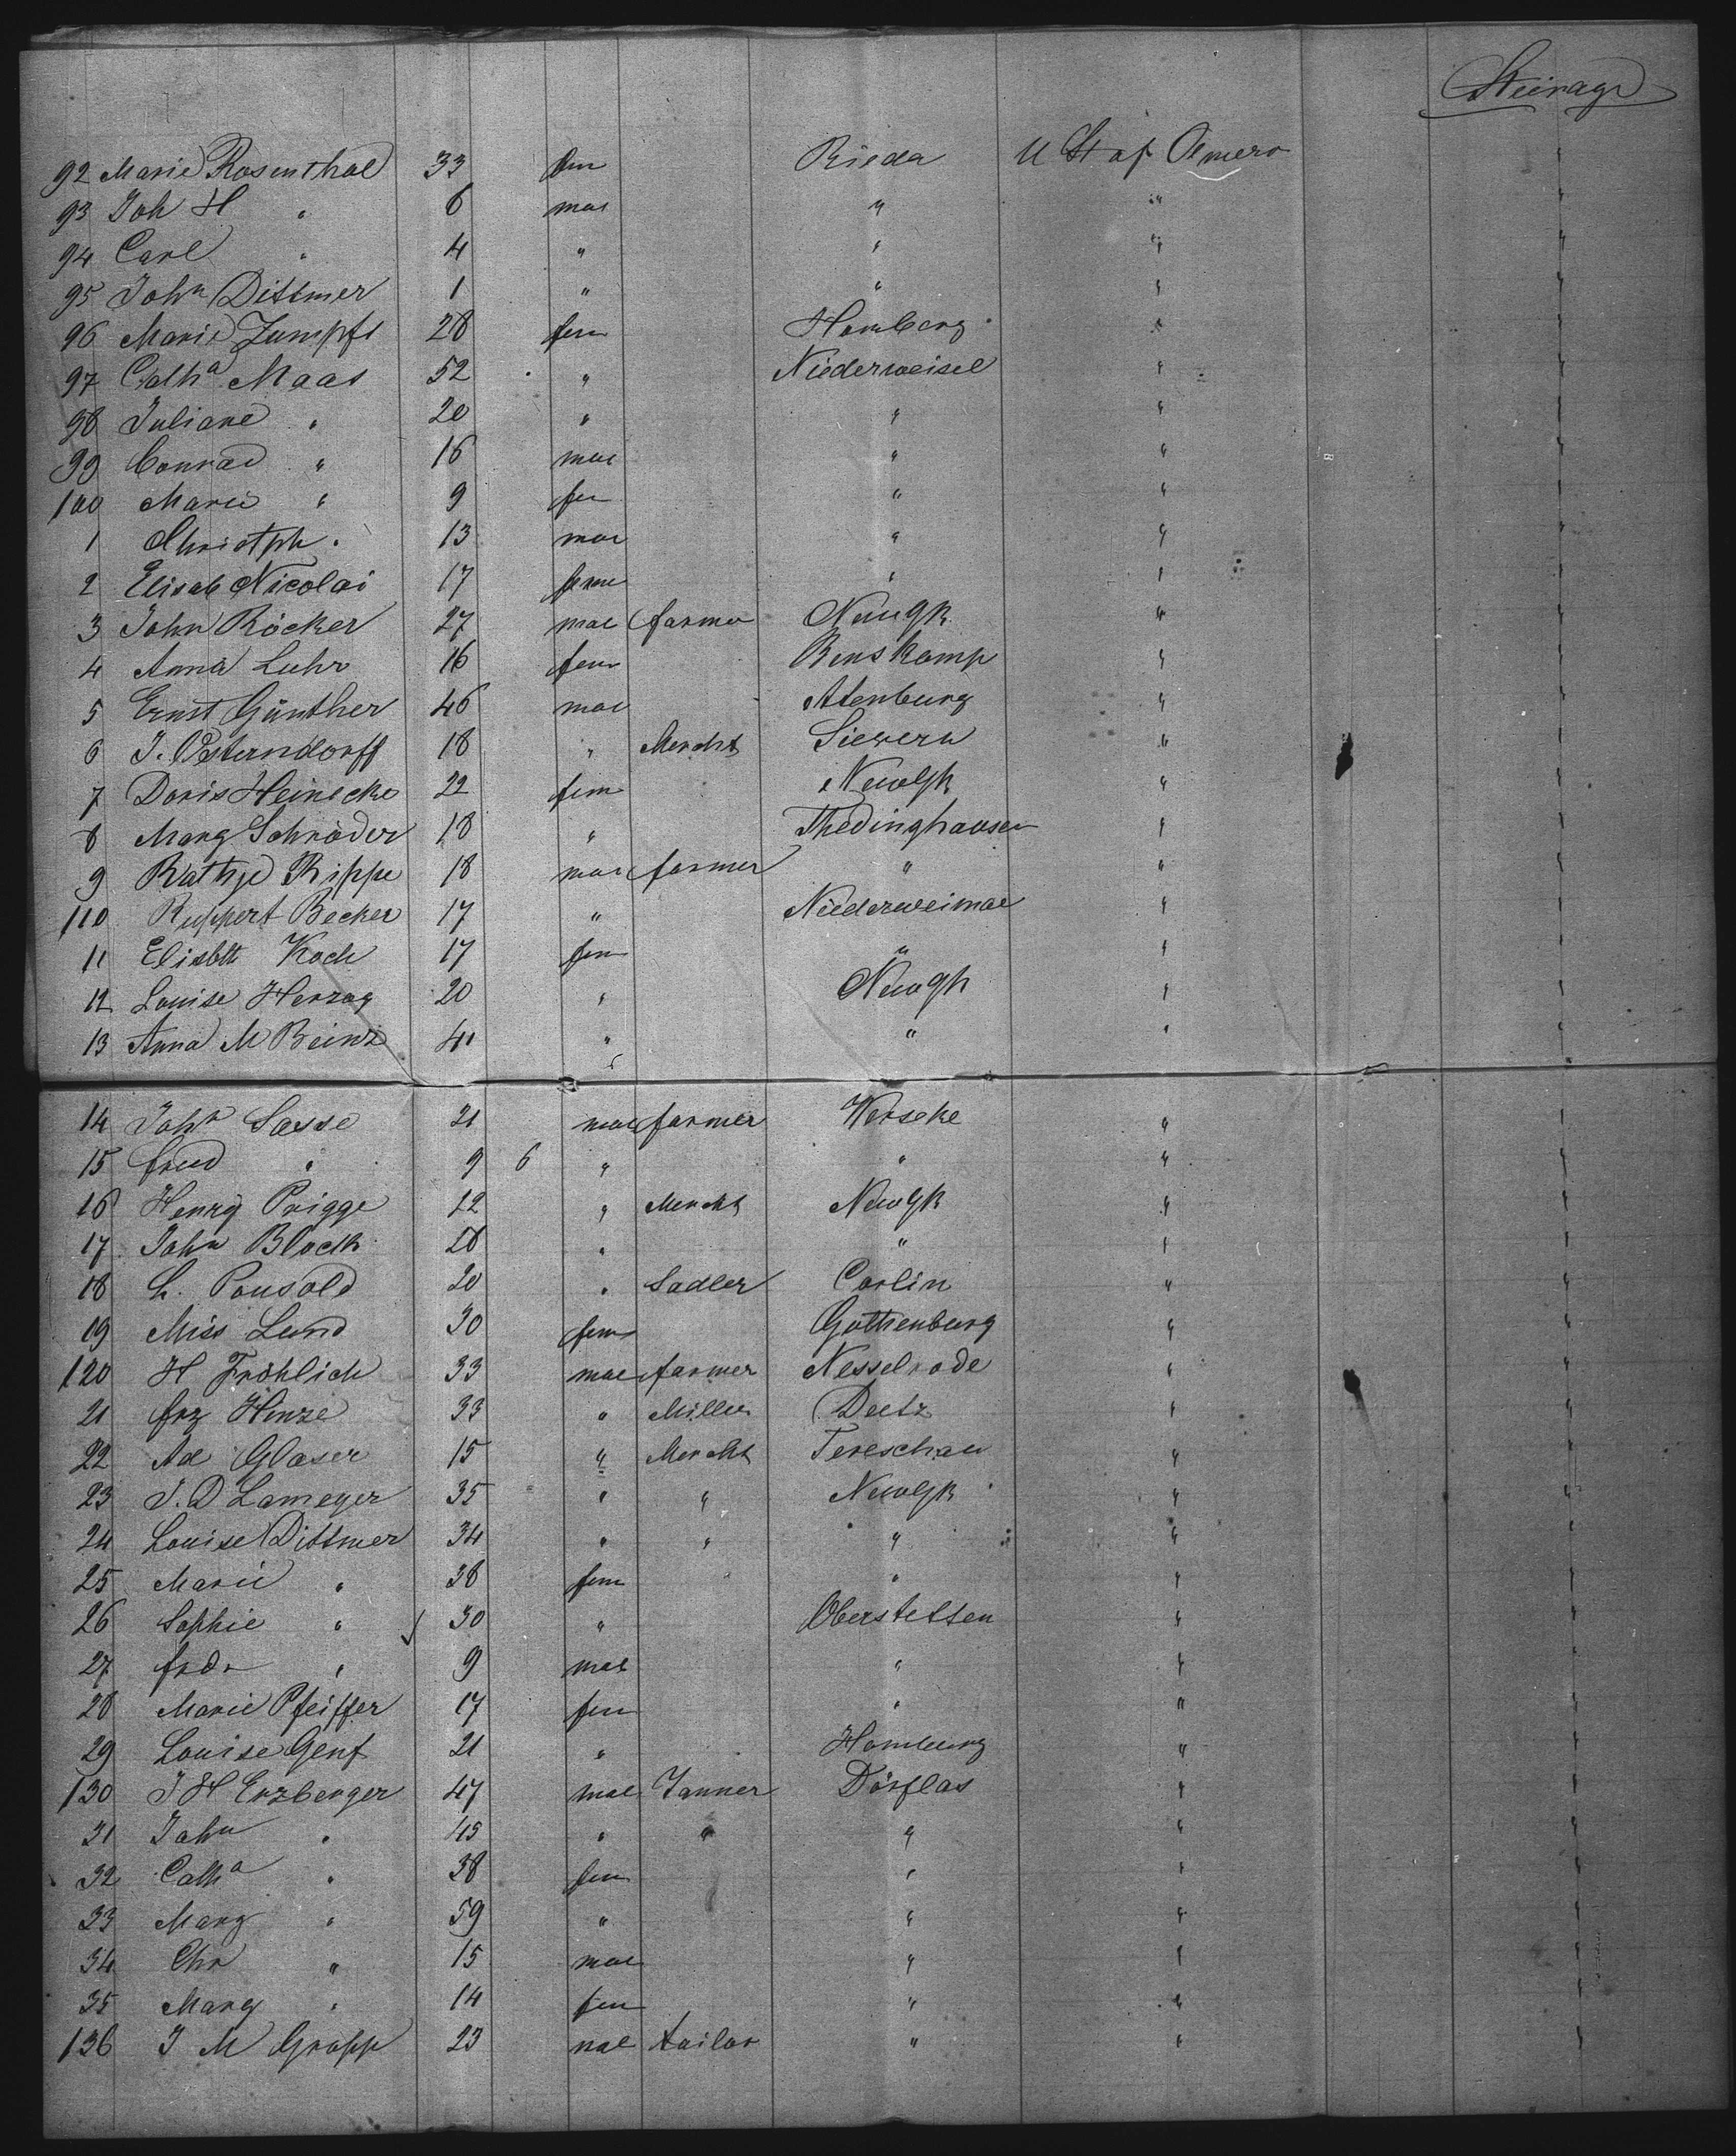 Steerage
92 Marie Rosenthal 33 fem Rieda U St of Amer
93 Joh H " 6 mal " " "
94 Carl " 4 " " " "
95 Joh^n Dittmer 1 " " " "
96 Marie Zumpft 28 fem Homberg " "
97 Cath^a Maas 52 " Niederweisel " "
98 Juliane " 20 " " " "
99 Conrad " 16 mal " " "
100 Marie " 9 fem " " "
1 Christph " 13 mal " " "
2 Elisab Nicolai 17 fem " " "
3 John Röcker 27 mal farmer NewYk " "
4 Anna Luhr 16 fem Benskamp " "
5 Ernst Günther 46 mal Altenburg " "
6 J. Osterndorff 18 " Mercht Sievern " "
7 Doris Heinecke 22 fem NewYk " "
8 Marg Schröder 18 " Thedinghausen " "
9 Rathje Rippe 18 mal farmer " " "
110 Ruppert Becker 17 " Niederweimar " "
11 Elisbth Koch 17 fem " " "
12 Louise Herzog 20 " NewYk " "
13 Anna M Beinz 41 " " " "
14 Joh^n Sasse 21 mal farmer Werseke " "
15 fred " 9 6 " " " "
16 Henry Prigge 22 " Mercht NewYk " "
17 John Block 28 " " " "
18 L. Pousold 20 " Sadler Corlin " "
19 Miss Lund 30 fem Gothenburg " "
120 H Fröhlich 33 mal farmer Nesselrode " "
21 frz Hinze 33 " Miller Deetz " "
22 Ad Glaser 15 " Mercht Tereschau " "
23 J. D Lameyer 35 " " NewYk " "
24 Louise Dittmer 34 " " " " "
25 Marie " 38 fem " " "
26 Sophie " 30 " Oberstetten " "
27 frdr " 9 mal " " "
28 Marie Pfeiffer 17 fem " " "
29 Louise Genf 21 " Homburg " "
130 J H Erzberger 47 mal Tanner Dörflas " "
31 John " 45 " " " " "
32 Cath^a " 38 fem " " "
33 Marg " 59 " " " "
34 Chr " 15 mal " " "
35 Marg " 14 fem " " "
136 J M Gropp 23 mal tailor " " "